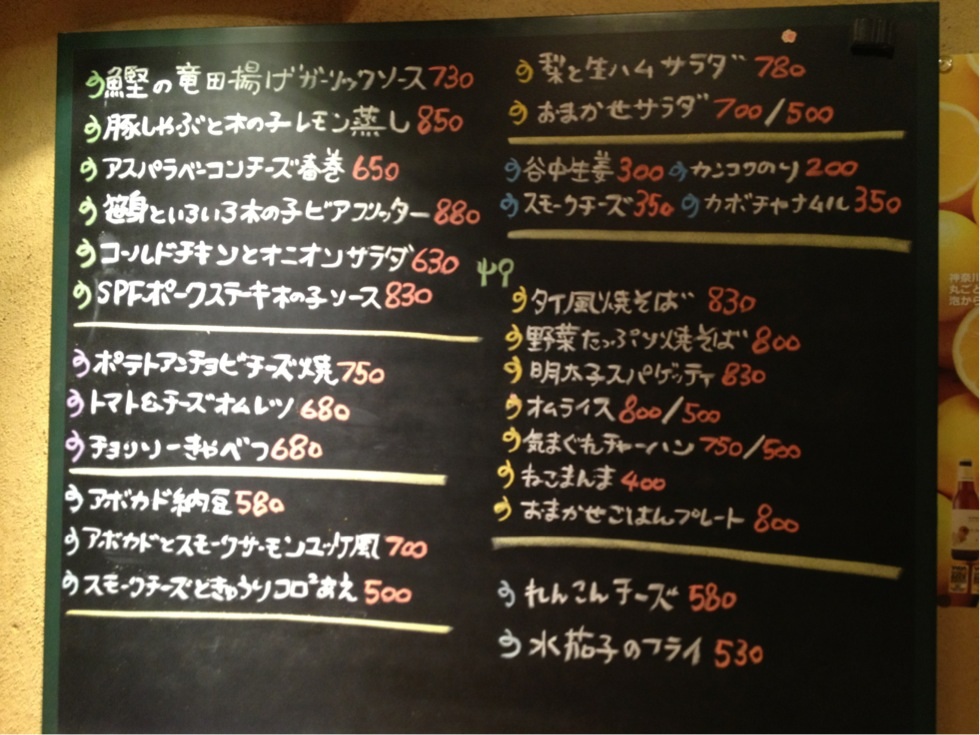 鰹の竜田揚げガーリックソース730
豚しゃぶと木の子レモン蒸し850
アスパラベーコンチーズ春巻650
といろいろ木の子ビアフリッター880
コールドチキンとオニオンサラダ630
SPFポークステーキ木の子ソース830
ポテトアンチョビチーズ焼750
トマト&チーズオムレツ680
チョリソーきゃべつ680
アボカド納豆580
アボカドとスモークサーモンユッケ風700
スモークチーズときゅうりコロコロあえ500
梨と生ハムサラダ780
おまかせサラダ700/500
谷中生姜300 カンコクのり200
スモークチーズ350 カボチャナムル350
タイ風焼そば830
野菜たっぷり焼そば800
明太子スパゲッティ830
オムライス800/500
気まぐれチャーハン750/500
ねこまんま400
おまかせごはんプレート800
れんこんチーズ580
水茄子のフライ530
神奈川
丸ごと
泡から